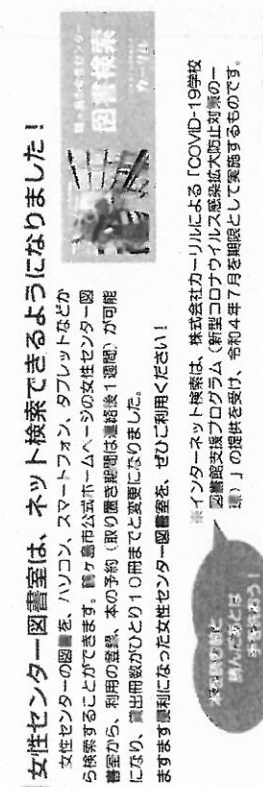 女性センター図書室は、ネット検索できるようになりました！
女性センターの図書を、パソコン、スマートフォン、タブレットなどか
ら検索することができます。鶴ヶ島市公式ホームページの女性センター図
書室から、利用の登録、本の予約（取り置き期間は連絡後１週間）が可能
になり、貸出冊数がひとり１０冊までと変更になりました。
ますます便利になった女性センター図書室を、ぜひご利用ください！
図書検索
カーリル
※インターネット検索は、株式会社カーリルによる「COVID-19学校
図書館支援プログラム（新型コロナウイルス感染拡大防止対策の一
環）」の提供を受け、令和４年７月を期限として実施するものです。